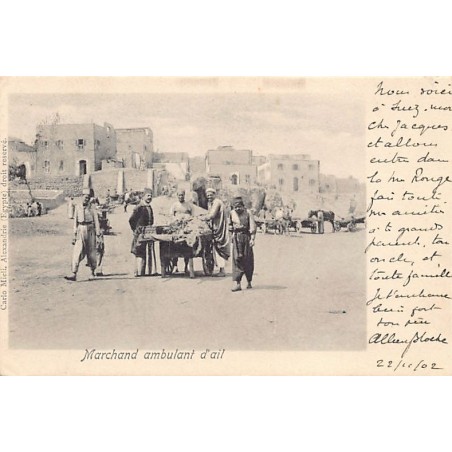 Carlo Mieli, Alexandrie (Egypte) droit reservé.
Marchand ambulant d'ail
Nous voici
à Suez, mon
cher Jacques
et allons
entrer dans
la m Rouge
fait
à tes grands
parents, ton
oncle, et
toute famille
Je t'embrasse
bien fort
ton
22/11/02